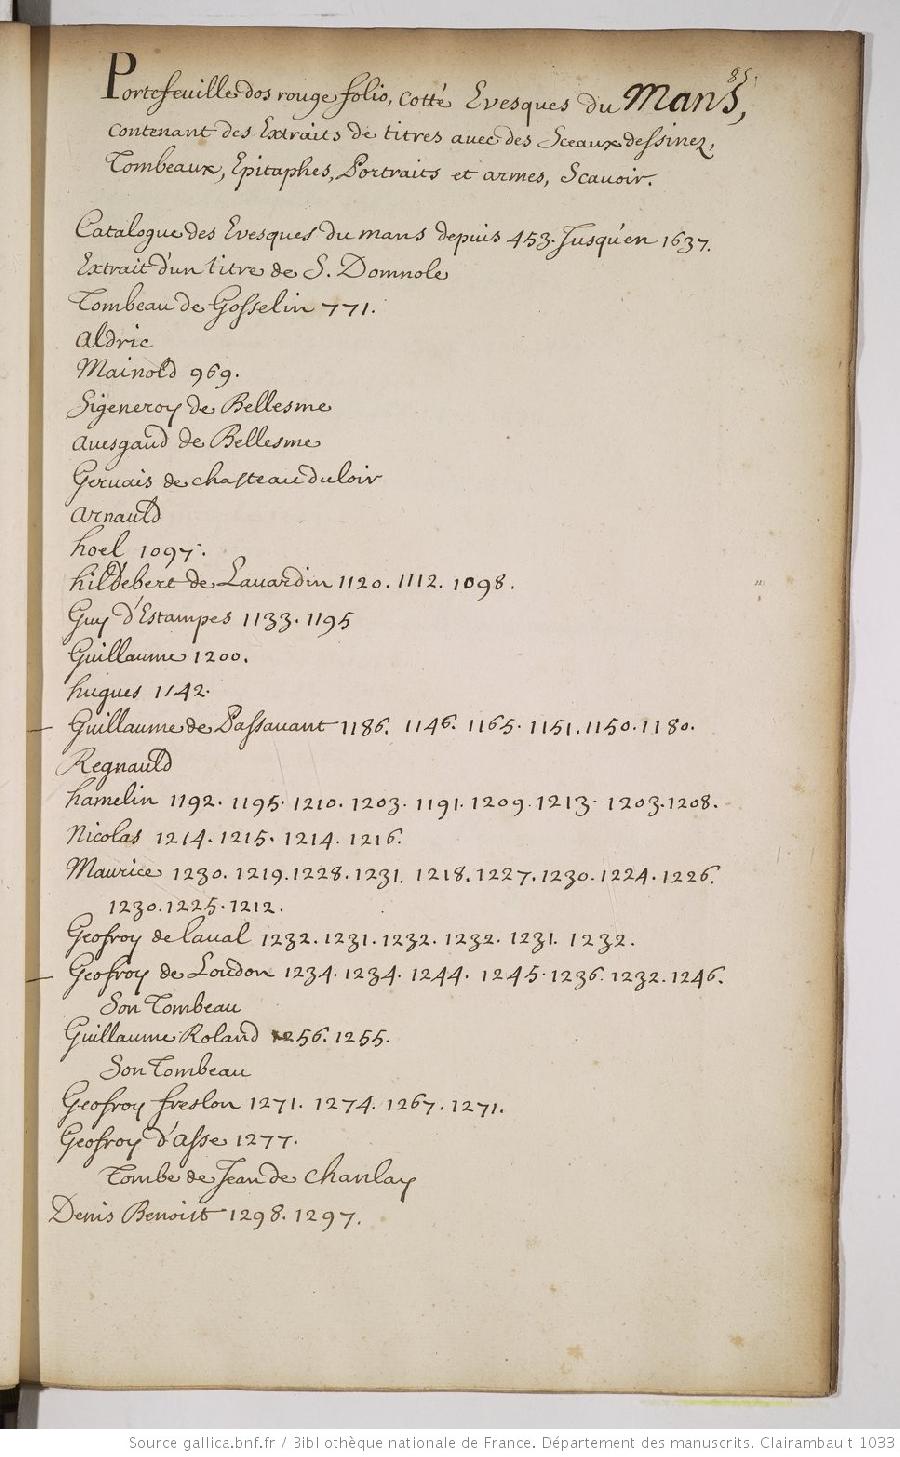 85.
Portefeuille dos rouge folio, cotté Evesques du Mans,
contenant des Extraits de titres avec des Sceaux dessinez,
Tombeaux, Epitaphes, Portraits et armes, Scavoir.
Catalogue des Evesques du mans depuis 453. Jusqu'en 1637.
Extrait d'un titre de S. Domnole
Tombeau de Gosselin 771.
Aldric
Mainold 969.
Sigeneroy de Bellesme
Auesgaud de Bellesme
Geruais de chasteauduloir
Arnauld
hoel 1097.
hildebert de Lauardin 1120. 1112. 1098.
Guy d'Estampes 1133. 1195
Guillaume 1200.
hugues 1142.
Guillaume de Passauant 1186. 1146. 1165. 1151. 1150. 1180.
Regnauld
hamelin 1192. 1195. 1210. 1203. 1191. 1209. 1213. 1203. 1208.
Nicolas 1214. 1215. 1214. 1216.
Maurice 1230. 1219. 1228. 1231. 1218. 1227. 1230. 1224. 1226.
1230. 1225. 1212.
Geofroy de laual 1232. 1231. 1232. 1232. 1231. 1232.
Geofroy de Loudon 1234. 1234. 1244. 1245. 1236. 1232. 1246.
Son Tombeau
Guillaume Roland 1256. 1255.
Son Tombeau
Geofroy freslon 1271. 1274. 1267. 1271.
Geofroy d'asse 1277.
Tombe de Jean de Chanlay
Denis Benoist 1298. 1297.
Source gallica.bnf.fr / Bibliothèque nationale de France. Département des manuscrits. Clairambault 1033